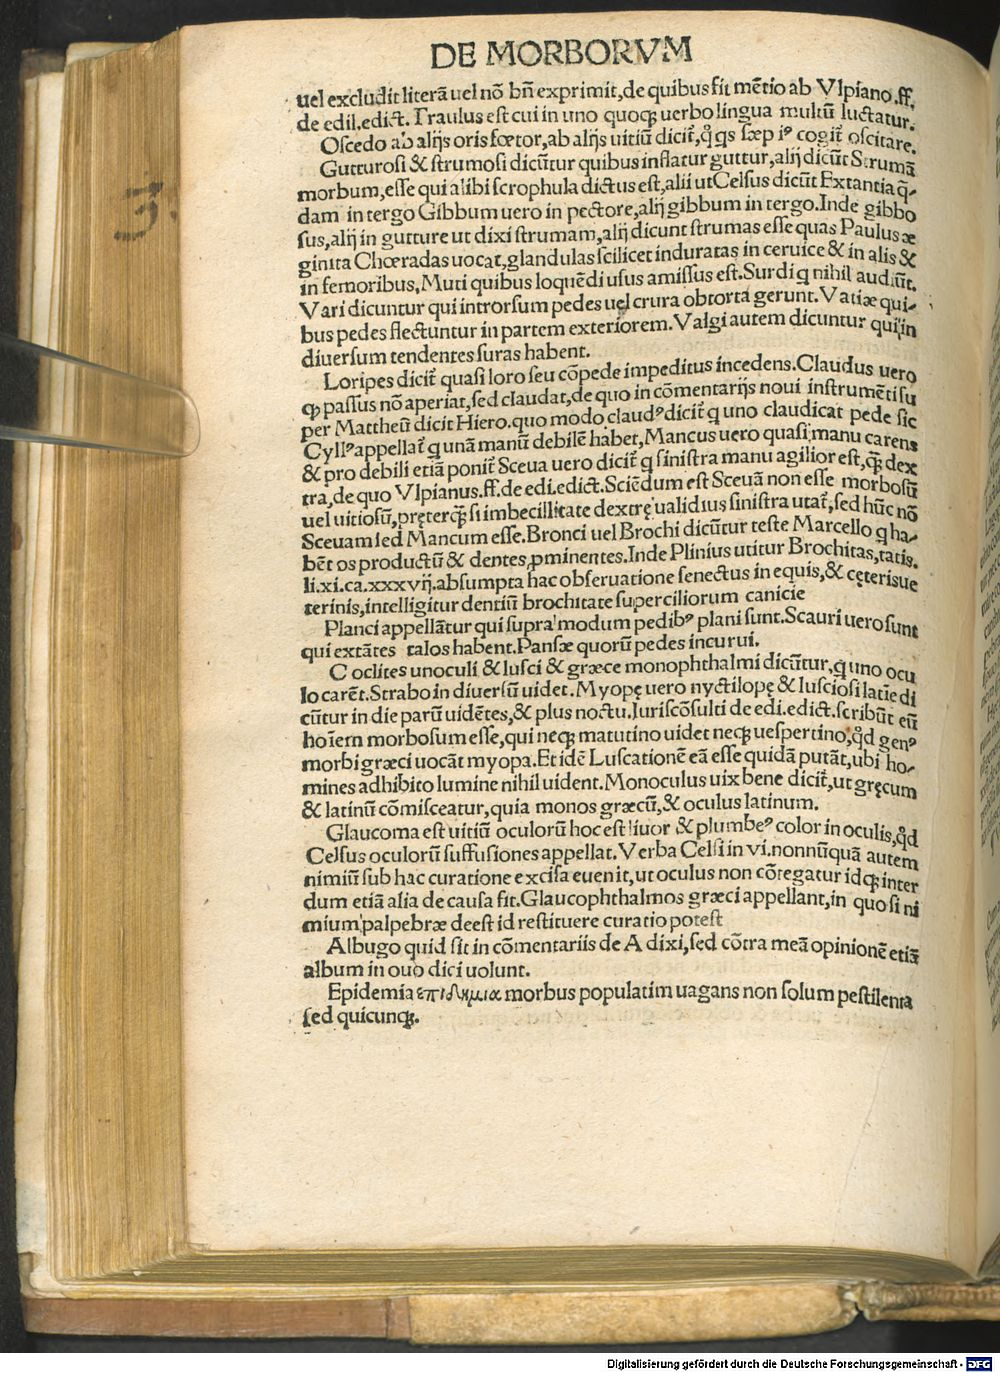 DE MORBORVM
uel excludit literã uel nõ bñ exprimit, de quibus fit mẽtio ab Vlpiano.ff.
de edil.edict. Traulus est cui in uno quoqꝫ uerbo lingua multũ luctatur.
Oscedo ab alijs oris fœtor, ab alijs uitiũ dicit᷑, q̊ qs sæpiꝰ cogit᷑ oscitare.
Gutturosi & strumosi dicũtur quibus inflatur guttur, alij dicũt Strumã
morbum, esse qui alibi scrophula dictus est, alii ut Celsus dicũt Extantia q̃-
dam in tergo Gibbum uero in pectore, alij gibbum in tergo. Inde gibbo
sus, alij in gutture ut dixi strumam, alij dicunt strumas esse quas Paulus æ
ginita Chœradas uocat, glandulas scilicet induratas in ceruice & in alis &
in femoribus, Muti quibus loquẽdi usus amissus est. Surdi q nihil audiũt.
Vari dicuntur qui introrsum pedes uel crura obtorta gerunt. Vatiæ qui-
bus pedes flectuntur in partem exteriorem. Valgi autem dicuntur qui in
diuersum tendentes suras habent.
Loripes dicit᷑ quasi loro seu cõpede impeditus incedens. Claudus uero
ꝙ passus nõ aperiat, sed claudat, de quo in cõmentarijs noui instrumẽti su
per Mattheũ dicit Hiero. quo modo claudꝰ dicit᷑ q uno claudicat pede sic
Cyllꝰ appellat᷑ q unã manũ debilẽ habet, Mancus uero quasi manu carens
& pro debili etiã ponit᷑ Sceua uero dicit᷑ q sinistra manu agilior est, q̃ꝫ dex
tra, de quo Vlpianus.ff.de edi.edict. Sciẽdum est Sceuã non esse morbosũ
uel uitiosũ, pręterq̃ꝫ si imbecillitate dextrę ualidius sinistra utat᷑, sed hũc nõ
Sceuam sed Mancum esse. Bronci uel Brochi dicũtur teste Marcello q ha-
bẽt os productũ & dentes ꝓminentes. Inde Plinius utitur Brochitas, tatis.
li.xi.ca.xxxvij. absumpta hac obseruatione senectus in equis, & cęteris ue
terinis, intelligitur dentiũ brochitate superciliorum canicie
Planci appellãtur qui supra modum pedibꝰ plani sunt. Scauri uero sunt
qui extãtes talos habent. Pansæ quorũ pedes incurui.
Coclites unoculi & lusci & græce monophthalmi dicũtur, q uno ocu
lo carẽt. Strabo in diuersũ uidet. Myopę uero nyctilopę & lusciosi latie di
cũtur in die parũ uidẽtes, & plus noctu. Iuriscõsulti de edi.edict.scribũt eũ
hoĩem morbosum esse, qui neqꝫ matutino uidet neqꝫ uespertino, q̊d genꝰ
morbi græci uocãt myopa. Et idẽ Luscationẽ eã esse quidã putãt, ubi ho-
mines adhibito lumine nihil uident. Monoculus uix bene dicit᷑, ut gręcum
& latinũ cõmisceatur, quia monos græcũ, & oculus latinum.
Glaucoma est uitiũ oculorũ hoc est liuor & plumbeꝰ color in oculis, q̊d
Celsus oculorũ suffusiones appellat. Verba Celsi in vi. nonnũquã autem
nimiũ sub hac curatione excisa euenit, ut oculus non cõtegatur idqꝫ inter
dum etiã alia de causa fit. Glaucophthalmos græci appellant, in quo si ni
mium palpebræ deest id restituere curatio potest
Albugo quid sit in cõmentariis de A dixi, sed cõtra meã opinionẽ etiã
album in ouo dici uolunt.
Epidemia επιδημια morbus populatim uagans non solum pestilenta
sed quicunqꝫ.
Digitalisierung gefördert durch die Deutsche Forschungsgemeinschaft - DFG